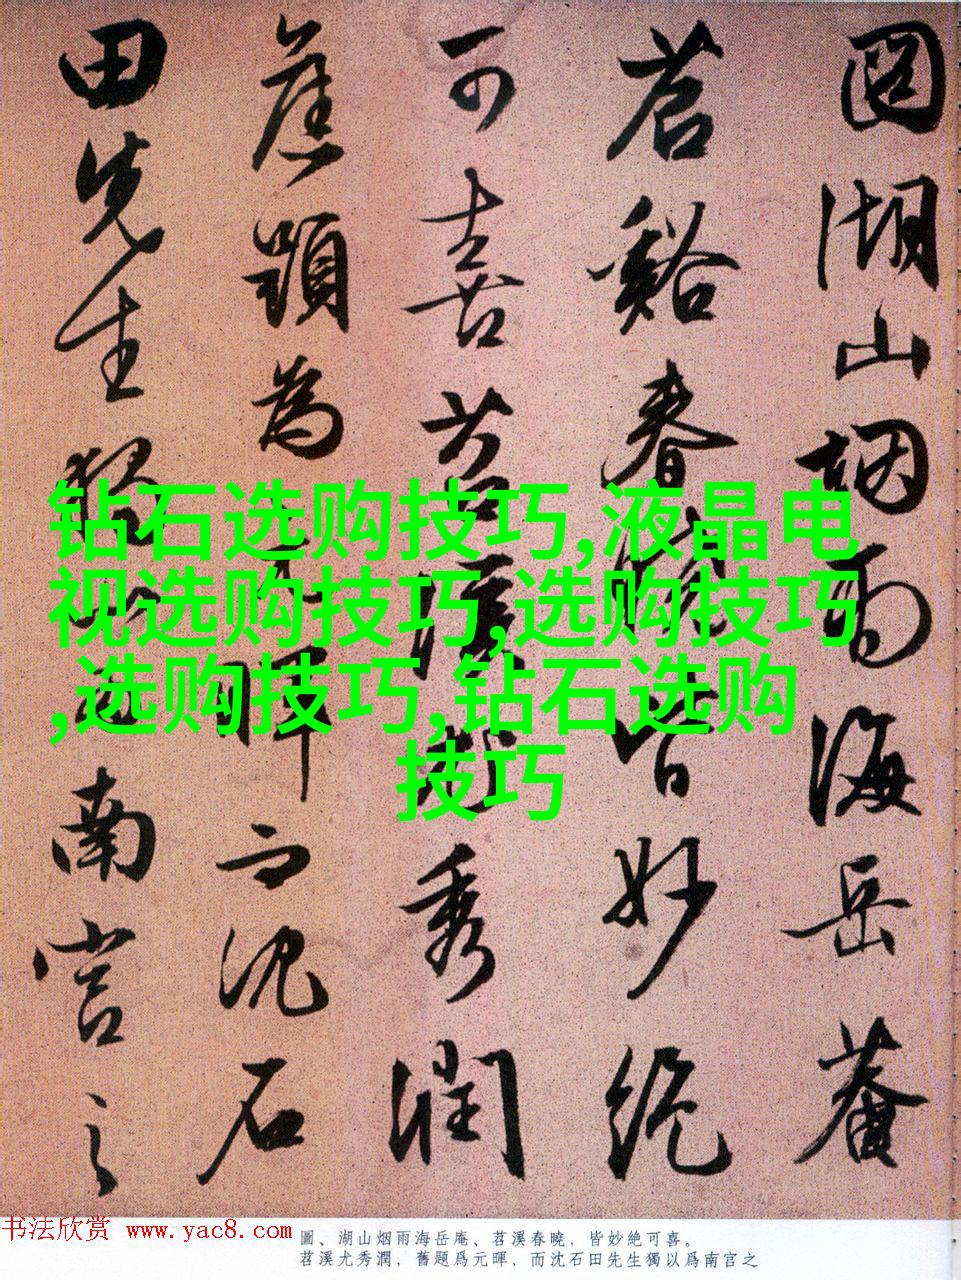 圖湖山烟雨海岳菴
苕谿春曉皆妙絶
可喜苕溪尤秀潤
舊題為元暉而沈石
田先生獨以為南宫之
钻石选购技巧,液晶电
视选购技巧,选购技巧
,选购技巧,钻石选购
技巧
书法欣赏 www.yac8.com
圖、湖山烟雨海岳庵、苕溪春曉，皆妙絶可喜。
苕溪尤秀潤，舊題爲元暉，而沈石田先生獨以爲南宫之